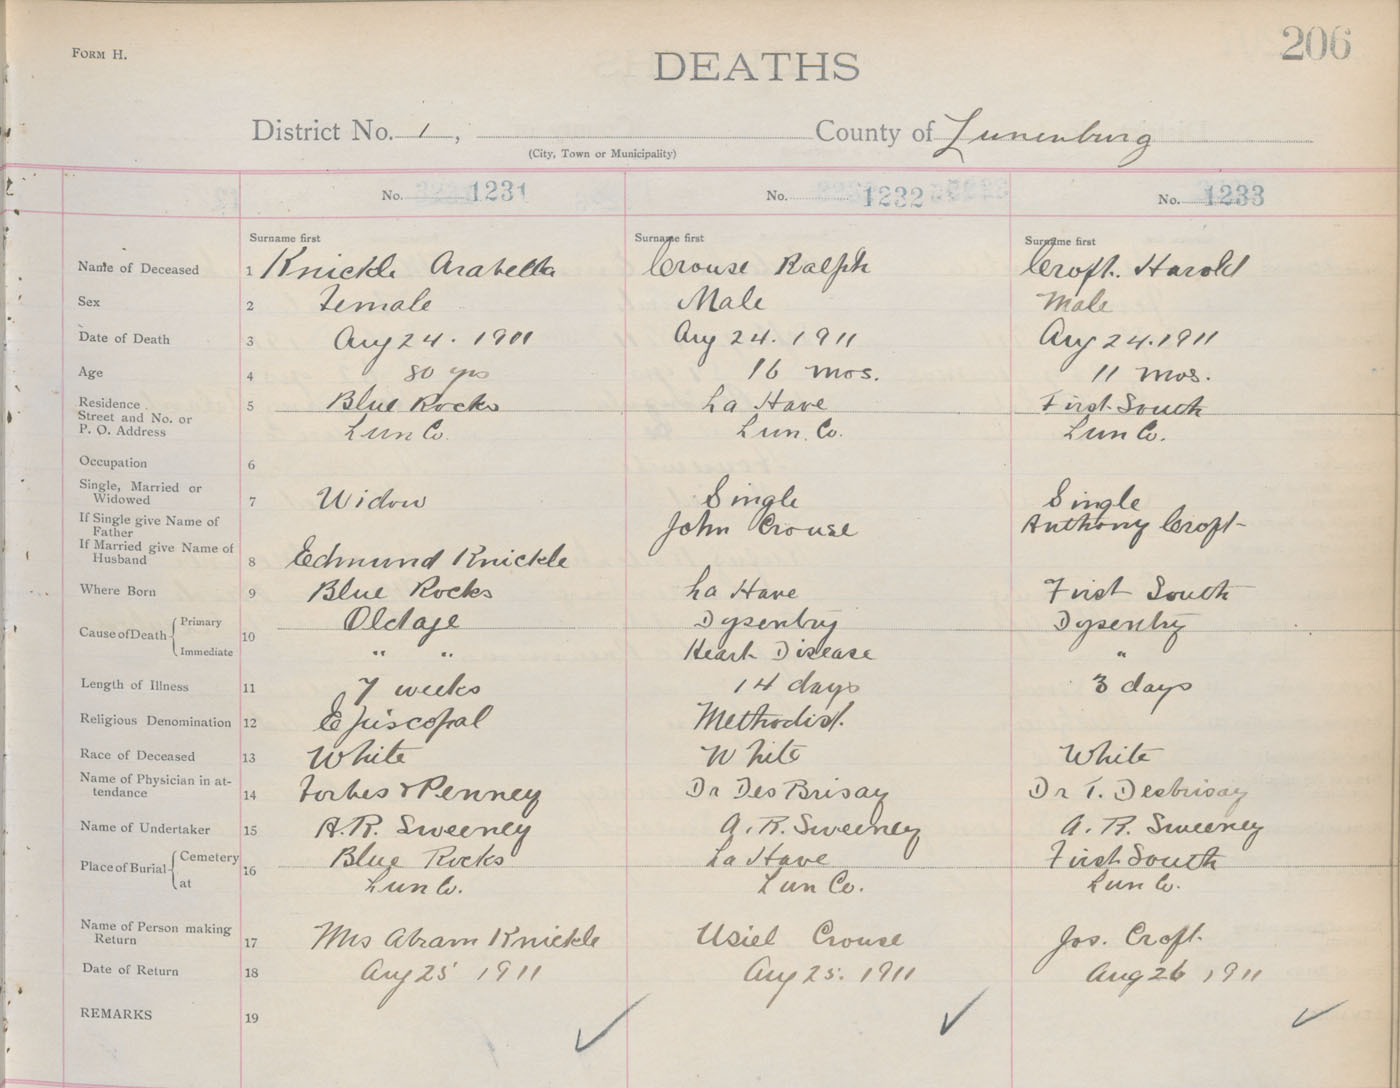 206
FORM H.
DEATHS
District No. 1, County of Lunenburg
(City, Town or Municipality)
No. 1231 No. 1232 No. 1233
Surname first Surname first Surname first
Name of Deceased 1 Knickle Arabella Crouse Ralph Croft. Harold
Sex 2 Female Male Male
Date of Death 3 Aug 24. 1911 Aug 24. 1911 Aug 24. 1911
Age 4 80 yrs 16 mos. 11 mos.
Residence 5 Blue Rocks La Have First South
Street and No. or
P. O. Address Lun Co. Lun. Co. Lun Co.
Occupation 6
Single, Married or
Widowed 7 Widow Single Single
If Single give Name of
Father John Crouse Anthony Croft
If Married give Name of
Husband 8 Edmund Knickle
Where Born 9 Blue Rocks La Have First South
Cause of Death Primary 10 Old age Dysentry Dysentry
Immediate " " Heart Disease "
Length of Illness 11 7 weeks 14 days 3 days
Religious Denomination 12 Episcopal Methodist.
Race of Deceased 13 White White White
Name of Physician in at-
tendance 14 Forbes & Penney Dr DesBrisay Dr T. Desbrisay
Name of Undertaker 15 A.R. Sweeney A. R. Sweeney A. R. Sweeney
Place of Burial Cemetery 16 Blue Rocks La Have First South
at Lun Co. Lun Co. Lun Co.
Name of Person making
Return 17 Mrs Abram Knickle Usiel Crouse Jos. Croft.
Date of Return 18 Aug 25 1911 Aug 25. 1911 Aug 26 1911
REMARKS 19